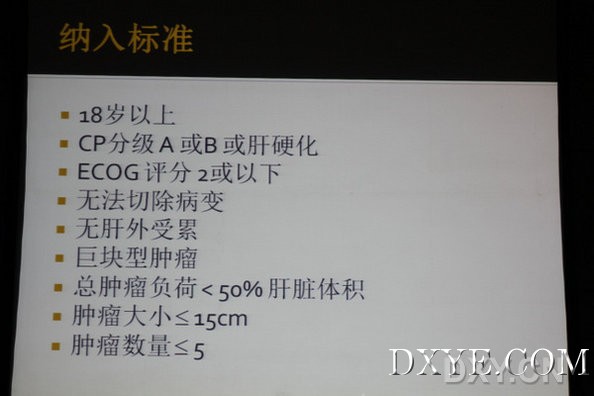 纳入标准
▪ 18岁以上
▪ CP分级 A 或B 或肝硬化
▪ ECOG 评分 2或以下
▪ 无法切除病变
▪ 无肝外受累
▪ 巨块型肿瘤
▪ 总肿瘤负荷 < 50% 肝脏体积
▪ 肿瘤大小 ≤ 15cm
▪ 肿瘤数量 ≤ 5
DXYE.COM
DXY.CN